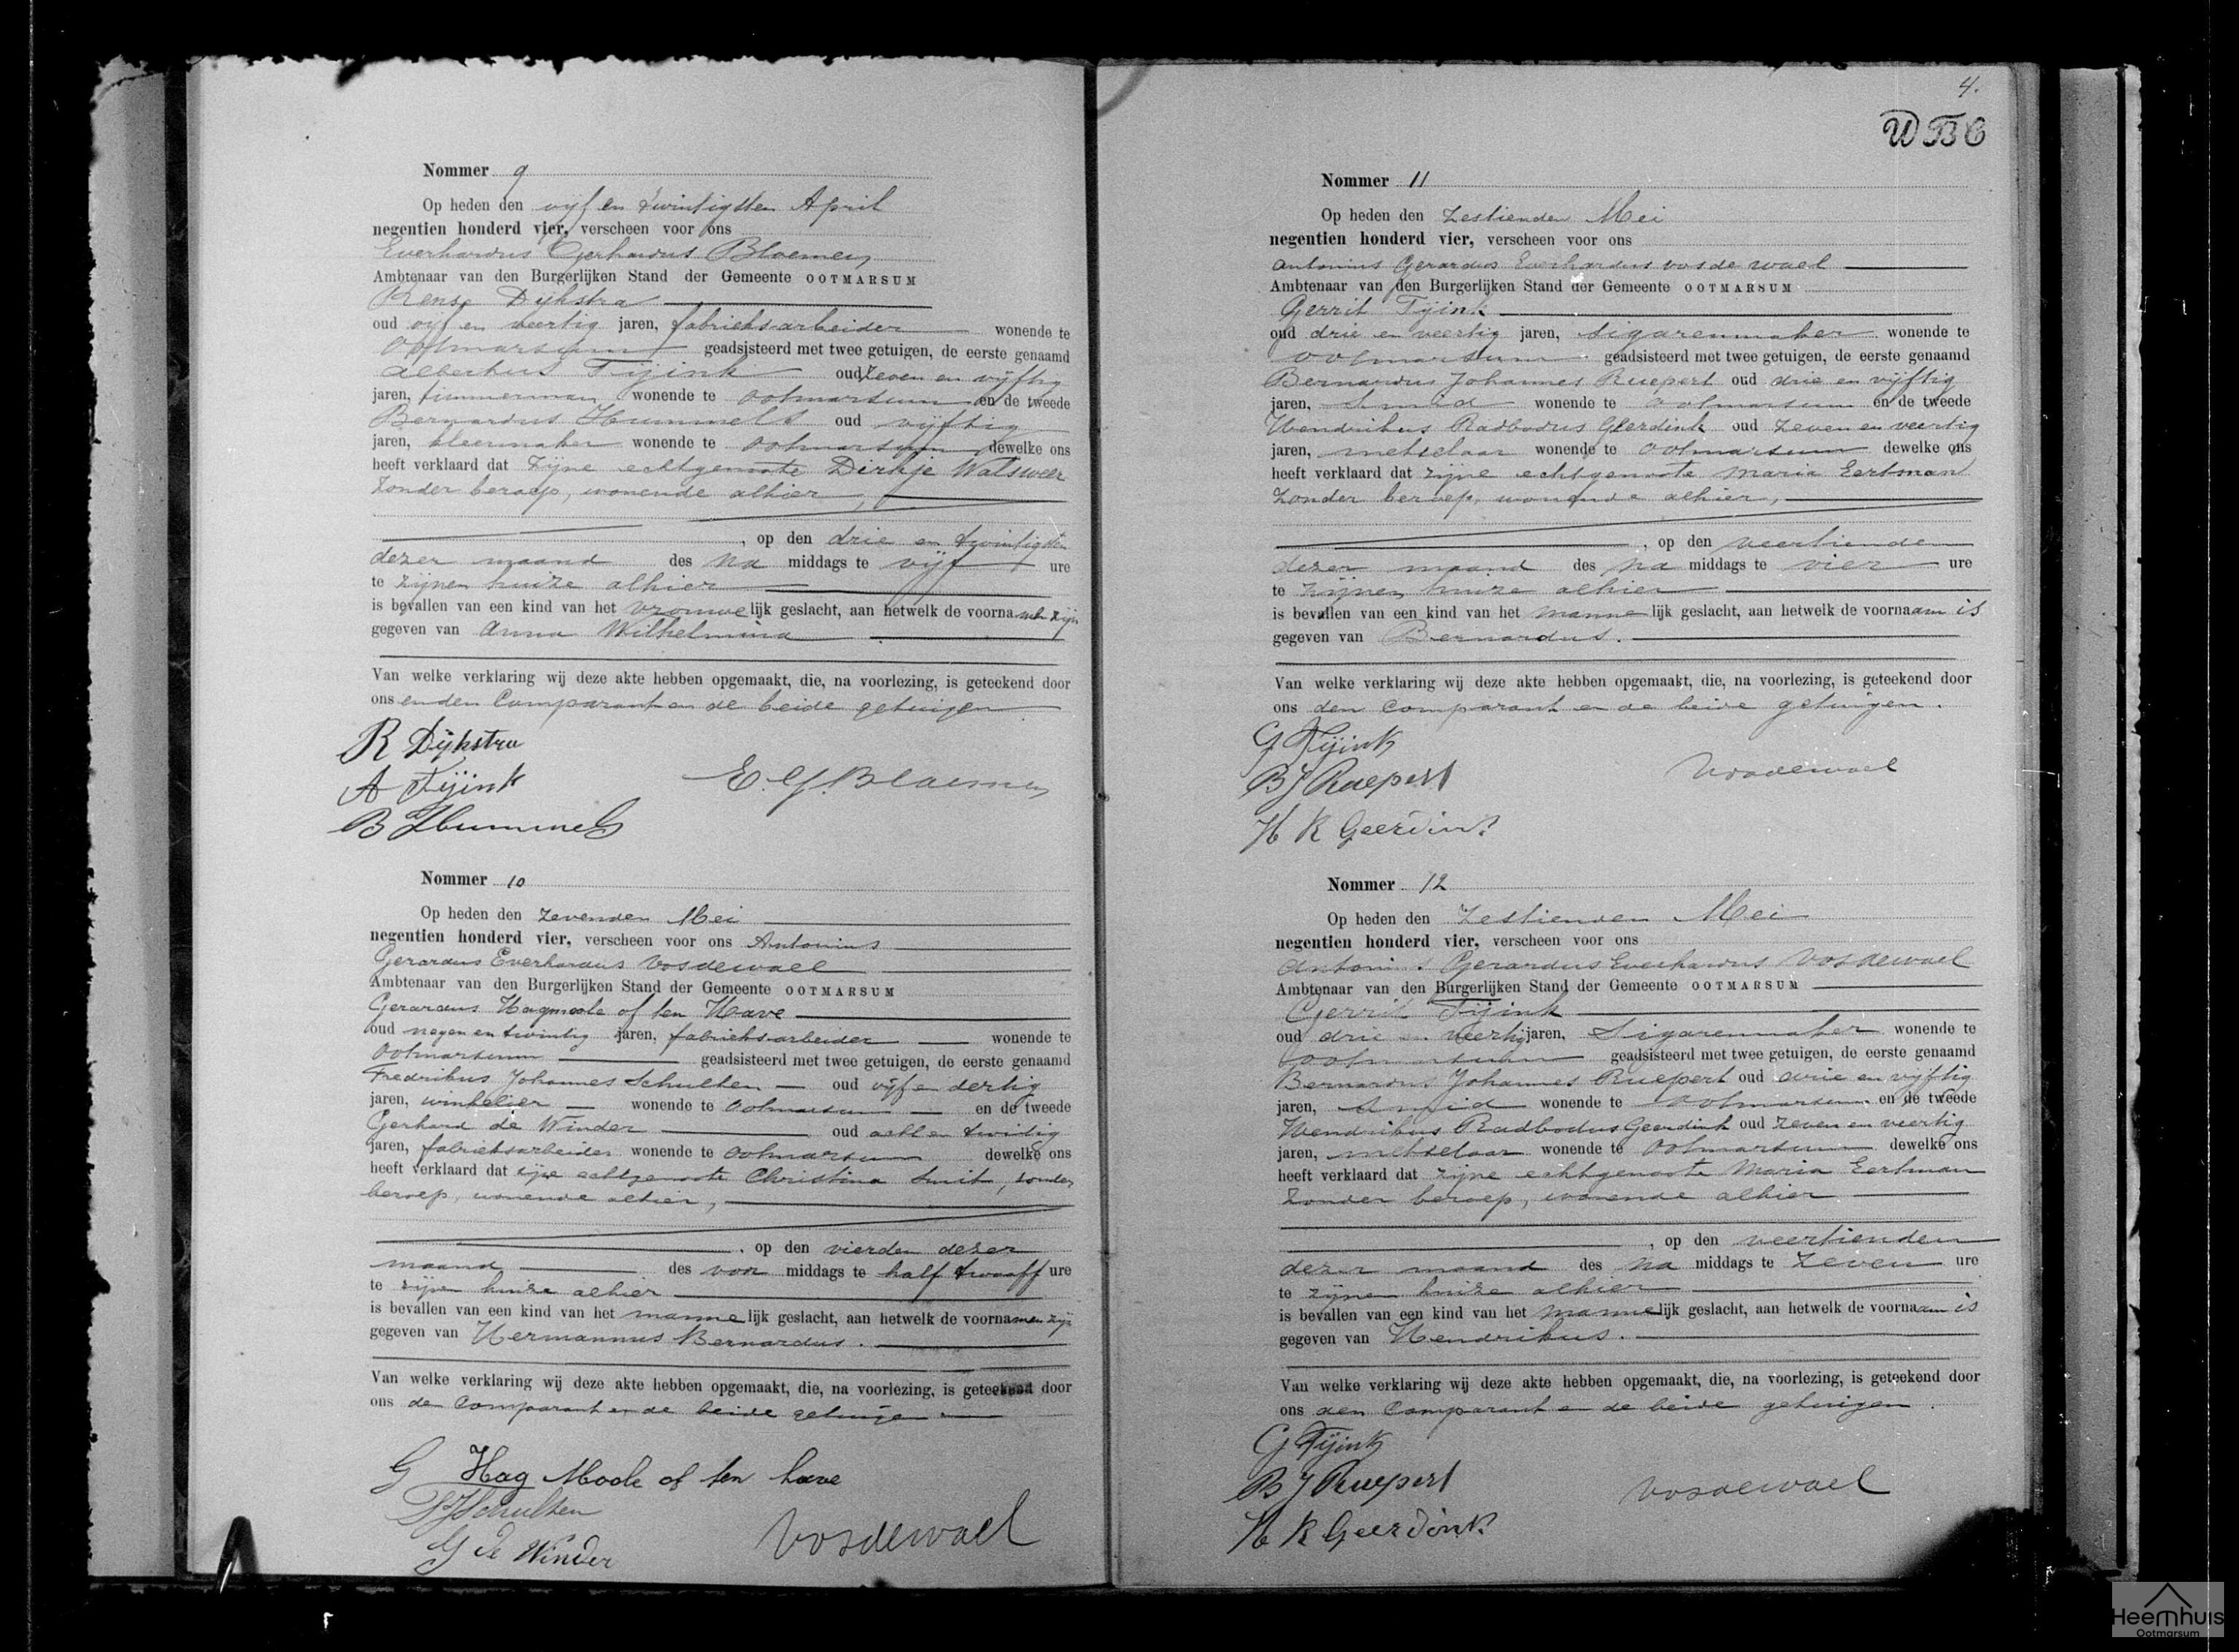 Nommer 9
Op heden den vijf en twintigsten April
negentien honderd vier, verscheen voor ons
Everhardus Gerhardus Bloemen
Ambtenaar van den Burgerlijken Stand der Gemeente OOTMARSUM
Rense Dijkstra
oud vijf en veertig jaren, fabrieksarbeider wonende te
Ootmarsum geadsisteerd met twee getuigen, de eerste genaamd
Albertus Tijink oud zeven en vijftig
jaren, timmerman wonende te Ootmarsum en de tweede
Bernardus Hummels oud vijftig
jaren, kleermaker wonende te Ootmarsum dewelke ons
heeft verklaard dat zijne echtgenoote Dirkje Walsweer
zonder beroep, wonende alhier,
, op den drie en twintigsten
dezer maand des na middags te vijf ure
te zijnen huize alhier
is bevallen van een kind van het vrouwelijk geslacht, aan hetwelk de voornamen zijn
gegeven van Anna Wilhelmina
Van welke verklaring wij deze akte hebben opgemaakt, die, na voorlezing, is geteekend door
ons en den Comparant en de beide getuigen
R Dijkstra
A Tijink
E. G. Bloemen
B Hummels
Nommer 10
Op heden den zevenden Mei
negentien honderd vier, verscheen voor ons Antonius
Gerardus Everhardus Vosdewael
Ambtenaar van den Burgerlijken Stand der Gemeente OOTMARSUM
Gerardus Hagmole of ten Have
oud negen en twintig jaren, fabrieksarbeider wonende te
Ootmarsum geadsisteerd met twee getuigen, de eerste genaamd
Fredrikus Johannes Schulten oud vijf en dertig
jaren, winkelier wonende te Ootmarsum en de tweede
Gerhard de Winder oud acht en twitig
jaren, fabrieksarbeider wonende te Ootmarsum dewelke ons
heeft verklaard dat zijne echtgenoote Christina Smit, zonder
beroep, wonende alhier,
, op den vierden dezer
maand des voor middags te half twaalf ure
te zijnen huize alhier
is bevallen van een kind van het mannelijk geslacht, aan hetwelk de voornamen zijn
gegeven van Hermannus Bernardus.
Van welke verklaring wij deze akte hebben opgemaakt, die, na voorlezing, is geteekend door
ons den Comparant en de beide getuigen
G Hag Moole of ten have
FJSchulten
G de Winder
Vosdewael
4.
Nommer 11
Op heden den zestienden Mei
negentien honderd vier, verscheen voor ons
Antonius Gerardus Everhardus vos de wael
Ambtenaar van den Burgerlijken Stand der Gemeente OOTMARSUM
Gerrit Tijink
oud drie en veertig jaren, sigarenmaker wonende te
Ootmarsum geadsisteerd met twee getuigen, de eerste genaamd
Bernardus Johannes Ruepert oud drie en vijftig
jaren, Smid wonende te Ootmarsum en de tweede
Hendrikus Radbodus Geerdink oud zeven en veertig
jaren, metselaar wonende te Ootmarsum dewelke ons
heeft verklaard dat zijne echtgenoote Maria Eertman
zonder beroep, wonende alhier,
, op den veertienden
dezer maand des na middags te vier ure
te zijnen huize alhier
is bevallen van een kind van het mannelijk geslacht, aan hetwelk de voornaam is
gegeven van Bernardus.
Van welke verklaring wij deze akte hebben opgemaakt, die, na voorlezing, is geteekend door
ons den Comparant en de beide getuigen.
G Tijink
BJ Ruepert
Vosdewael
H R Geerdink
Nommer 12
Op heden den Zestienden Mei
negentien honderd vier, verscheen voor ons
Antonius Gerardus Everhardus Vosdewael
Ambtenaar van den Burgerlijken Stand der Gemeente OOTMARSUM
Gerrit Tijink
oud drie en veertig jaren, Sigarenmaker wonende te
Ootmarsum geadsisteerd met twee getuigen, de eerste genaamd
Bernardus Johannes Ruepert oud drie en vijftig
jaren, Smid wonende te Ootmarsum en de tweede
Hendrikus Radbodus Geerdink oud zeven en veertig
jaren, metselaar wonende te Ootmarsum dewelke ons
heeft verklaard dat zijne echtgenoote Maria Eertman
zonder beroep, wonende alhier
, op den veertienden
dezer maand des na middags te zeven ure
te zijnen huize alhier
is bevallen van een kind van het mannelijk geslacht, aan hetwelk de voornaam is
gegeven van Hendrikus.
Van welke verklaring wij deze akte hebben opgemaakt, die, na voorlezing, is geteekend door
ons den Comparant en de beide getuigen.
G Tijink
BJ Ruepert
Vosdewael
H R Geerdink
Heemhuis
Ootmarsum